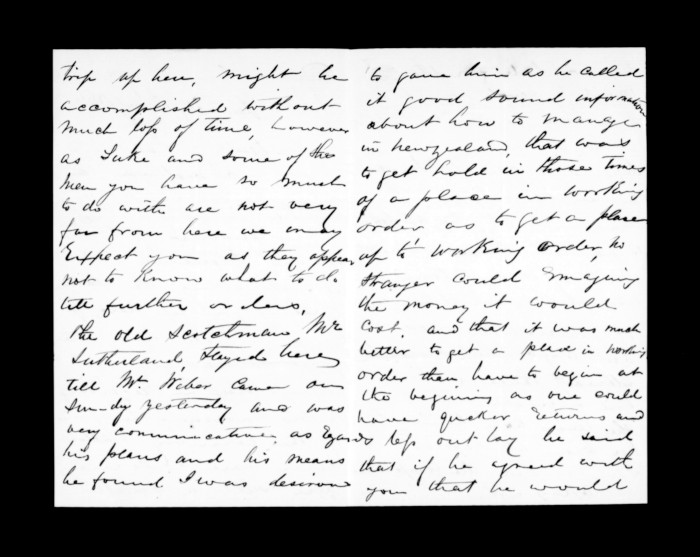 trip up here, might be
accomplished without
much loss of time, however
as Luke and some of the
men you have so much
to do with are not very
far from here we may
Expect you as they appear
not to know what to do
till further orders,
The old Scotchman Mr
Sutherland, Stayed here
till Mr Weber came on
Sun-dy yesterday and was
very communicative, as Egards
his plans and his means
he found I was desirous
to gave him as he called
it good sound information
about how to manage
in Newzealand, that was
to get hold in those times
of a place in working
order as to get a place
up to working order, no
Stranger could Emagine
the money it would
Cost. and that it was much
better to get a place in working
order then have to begin at
the beginning as one could
have quicker Returns and
less out lay he said
that if he agreed with
you that he would